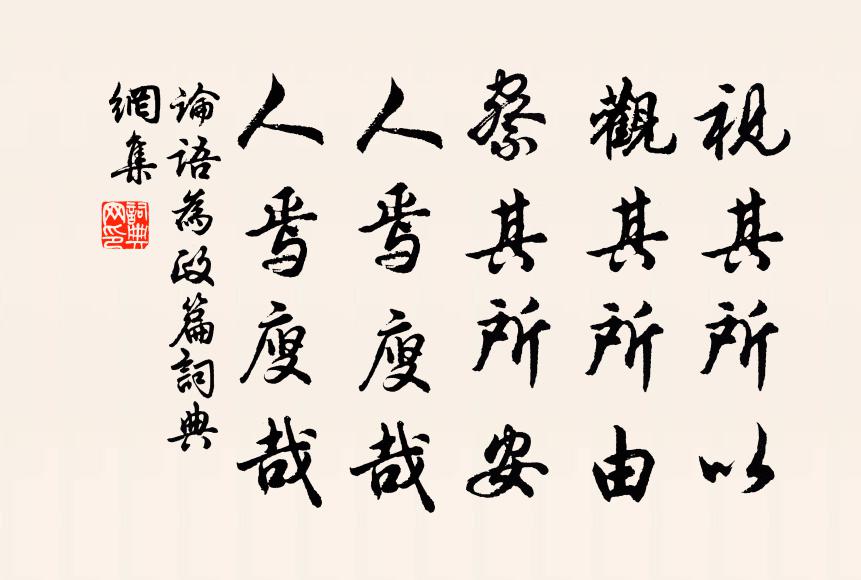 視其所以
觀其所由
察其所安
人焉廋哉
人焉廋哉
論語為政篇詞典
網集
詞典
网印